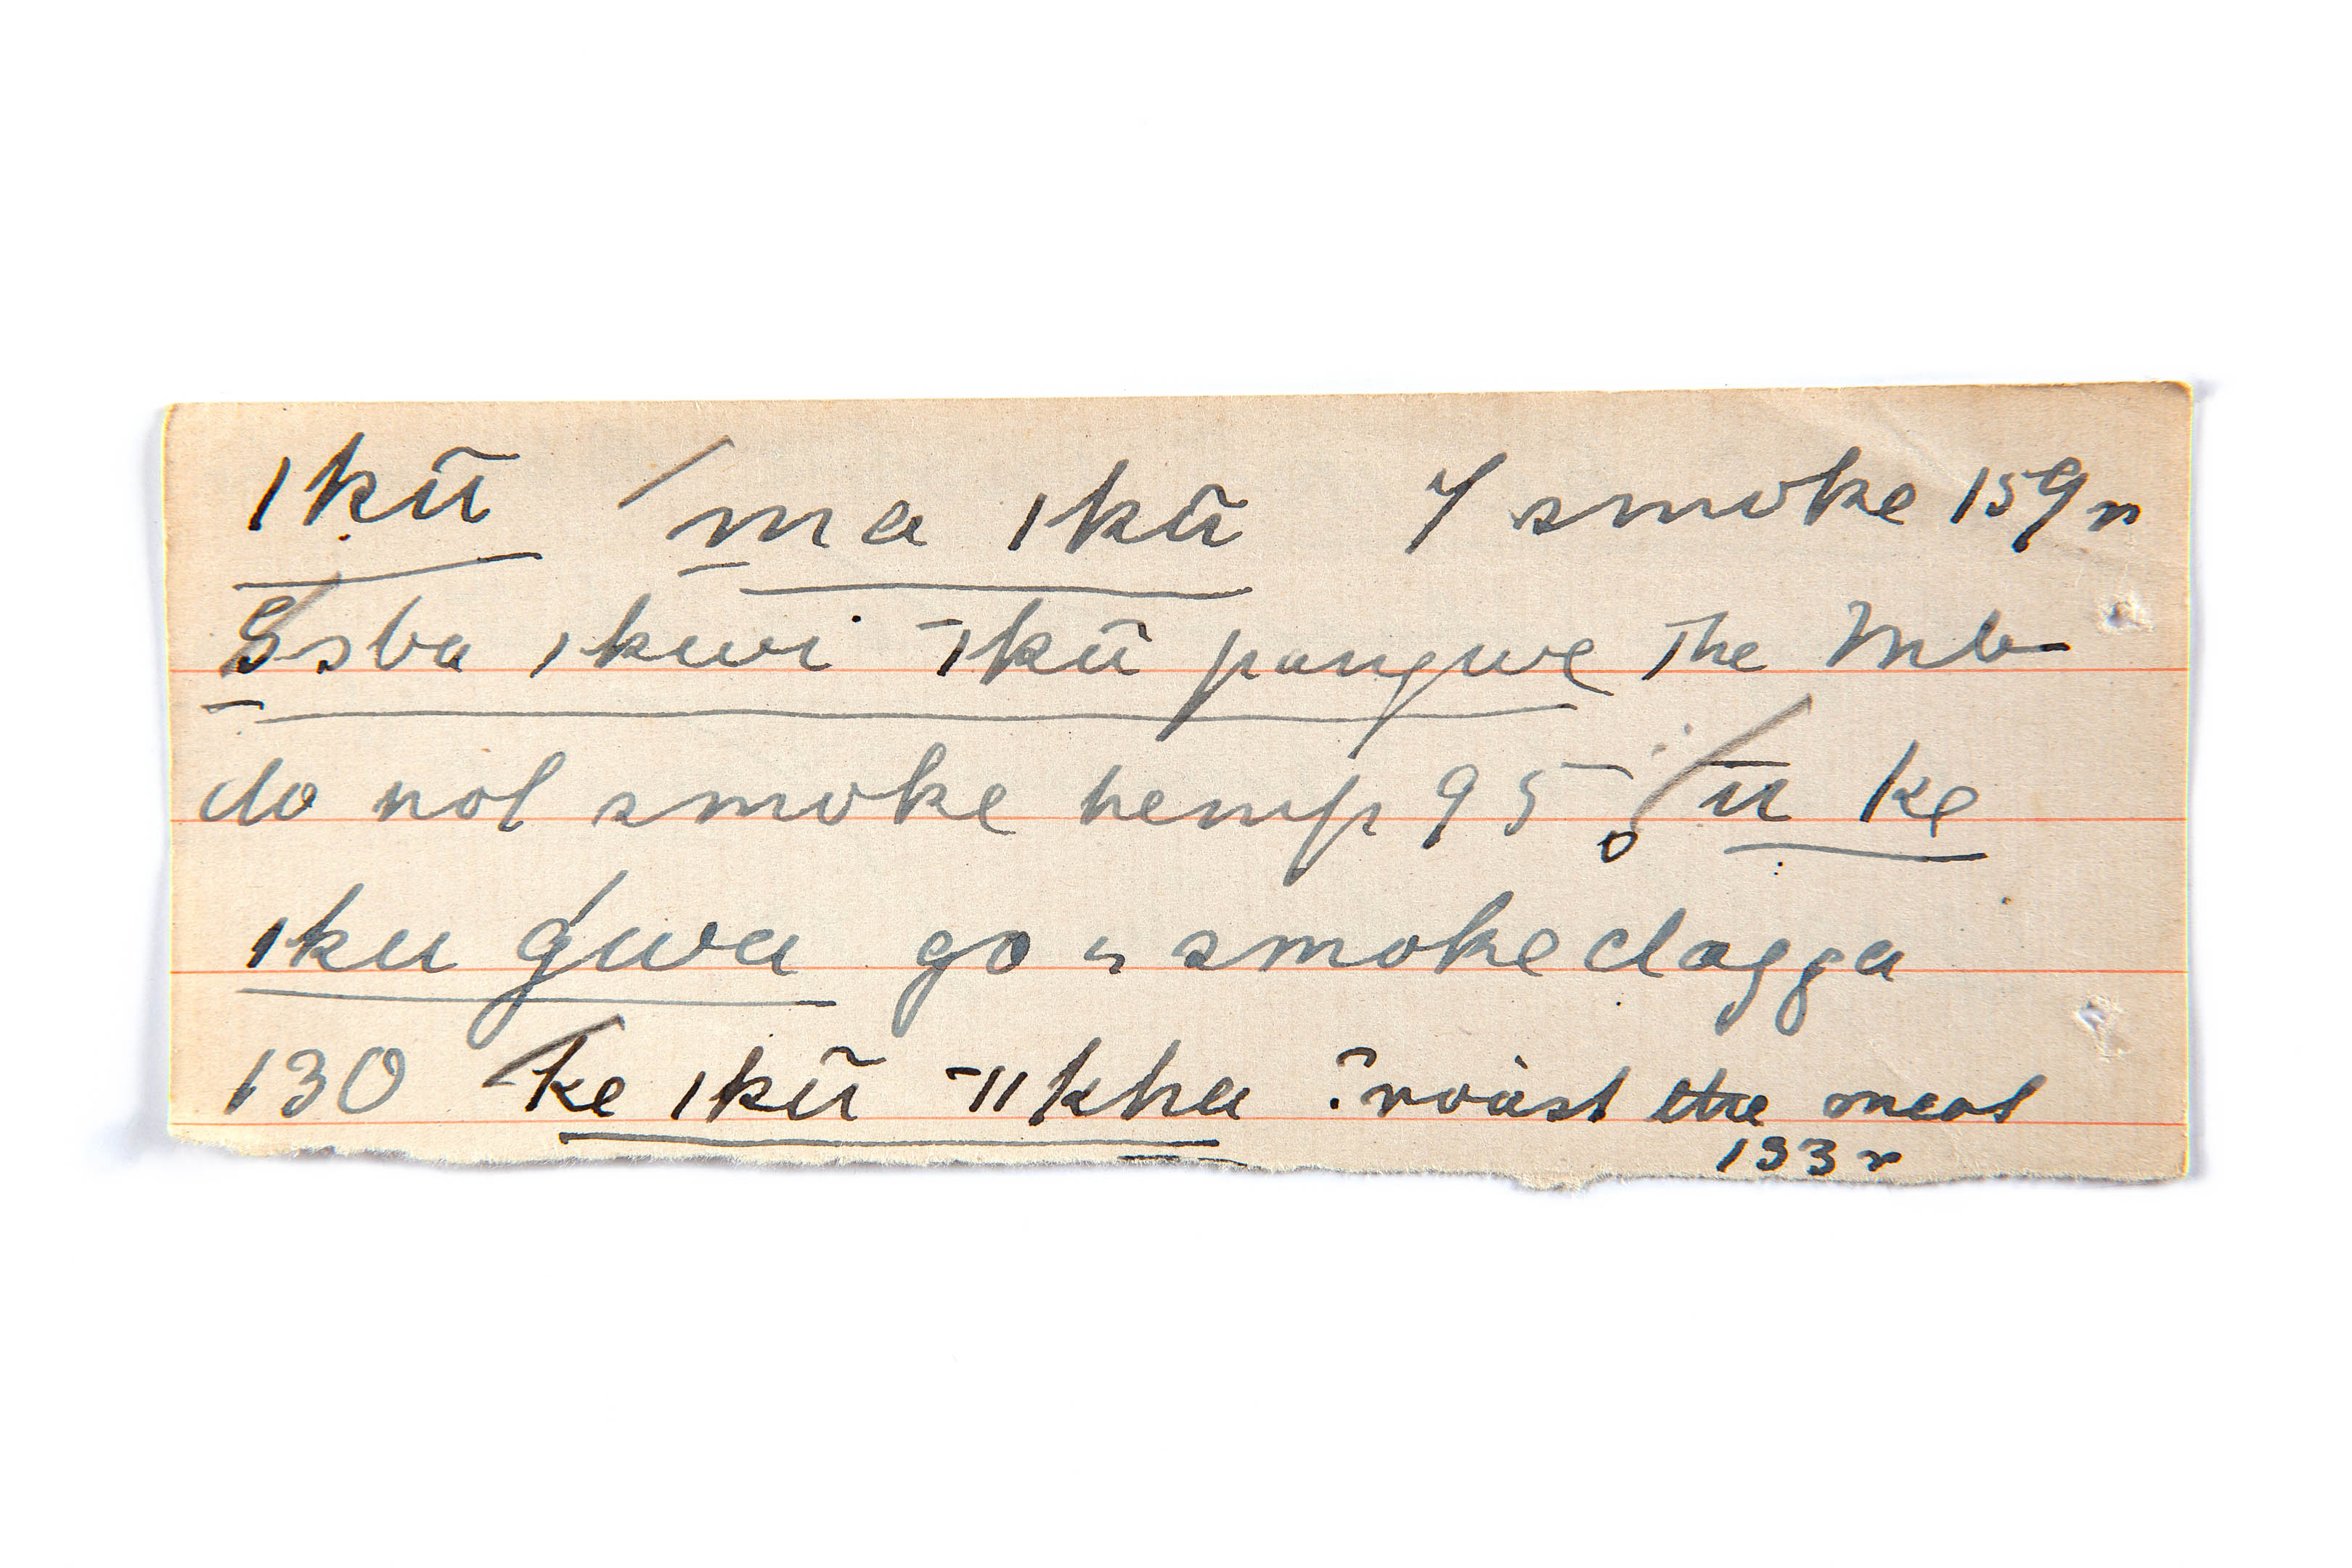 ıkū ma ıkū I smoke 159r
sba ıkwi ‾ıkū pangwe The Mb‒
do not smoke hemp 95 ū ke
ıku gwa go & smoke dagga
130 ke ıkū ‾ıı kha ? roast the meat
133r